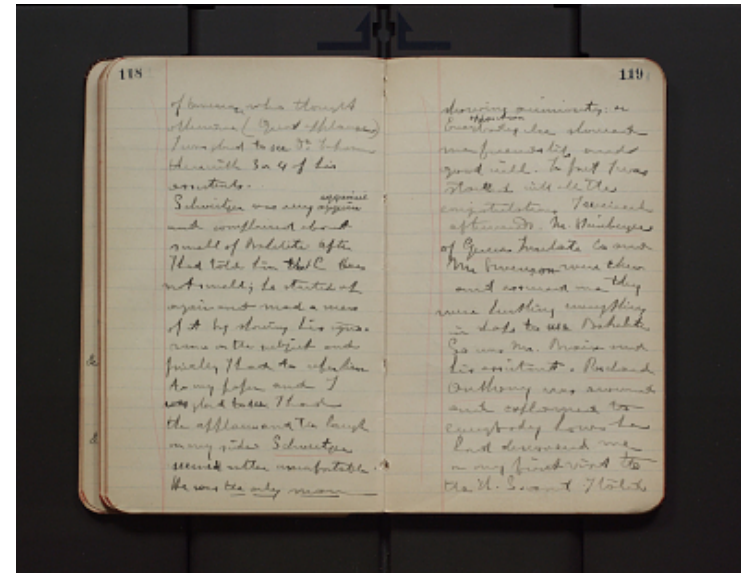 118
of America, who thought
otherwise (Great Applause)
I was glad to see Dr.
there with 3 or 4 of his
assistants.
Schweitzer was very aggressive
and complained about
smell of Bakelite after
I had told him that C does
not smell; he started up
again and made a mess
of it by showing his igno-
rance on the subject and
finally I had to refer him
to my paper and I
was glad to see I had
the applause and the laugh
on my side. Schweitzer
seemed rather uncomfortable.
He was the only man
119
showing animosity or
opposition
Everybody else showed
me friendship and
good will. In fact I was
with all the
congratulations I received
afterwards. Mr.
of General Insulate Co and
Mr. Swenson were there
and assured me they
were hustling everything
in shape to use Bakelite
So was Mr. and
his assistant. Richard
Anthony was around
and explained to
everybody how he
had discovered me
on my first visit to
the U.S. and I